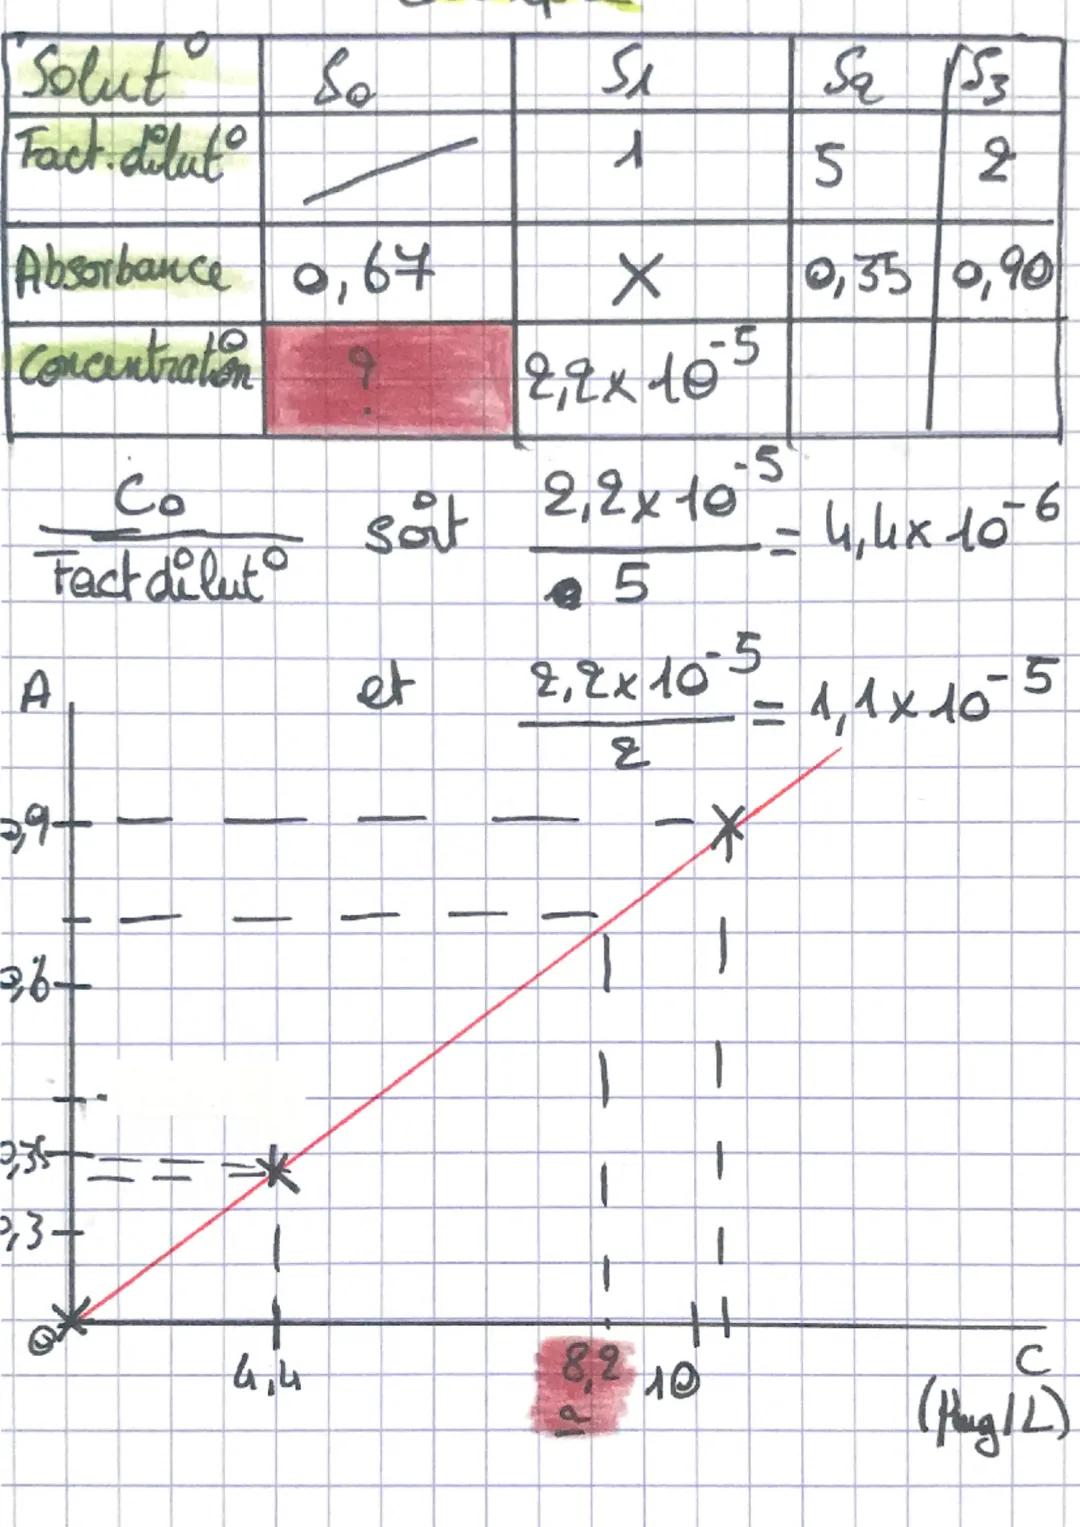 Solut° S0 S1 S2 S3
Fact.dilut° 1 5 2
Absorbance 0,67 X 0,35 0,90
Concentration ? 2,2x10-5
C0 / Fact dilut° soit 2,2x10-5 / 5 = 4,4x10-6
et 2,2x10-5 / 2 = 1,1x10-5
A
0,9
0,6
0,35
0,3
0
4,4 8,2 10 C
?